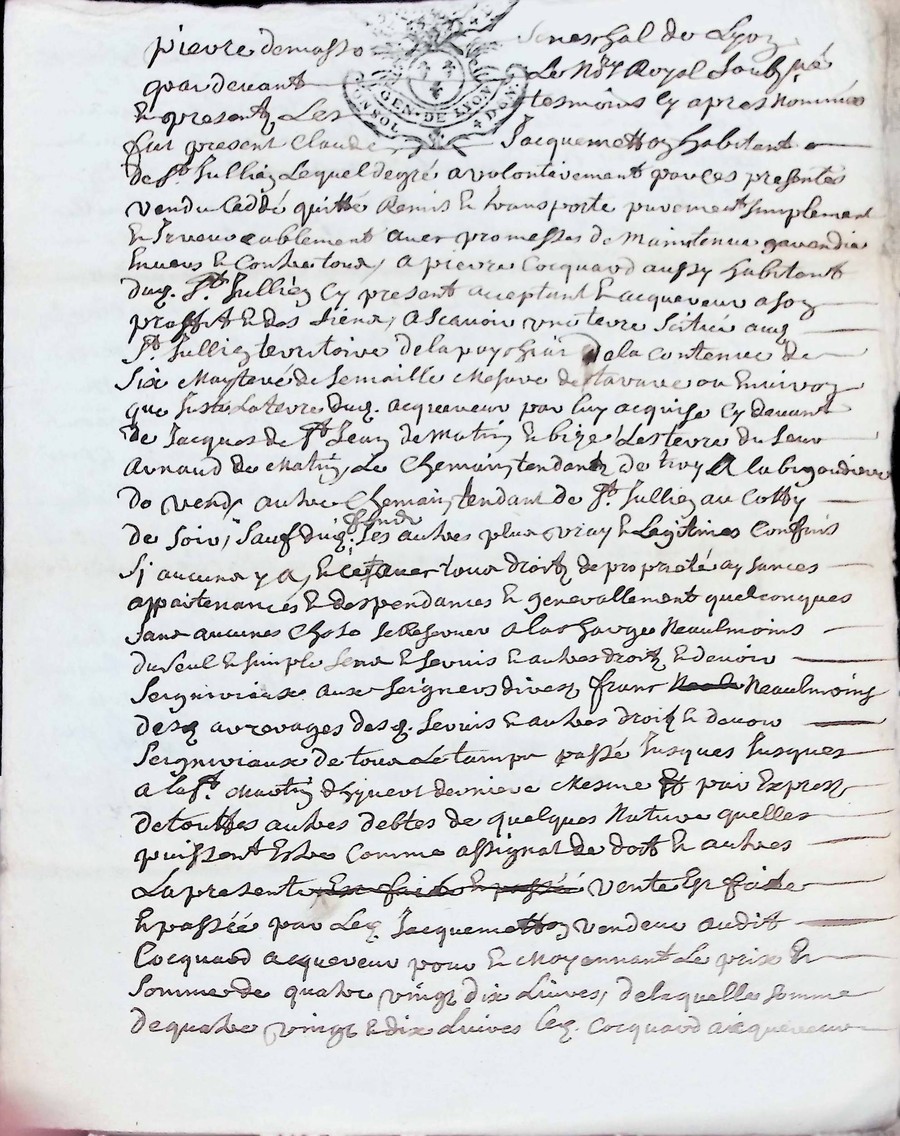 pierre demasso Seneschal de Lyon
GEN. DE LYON
UN SOL 4 D.
pardevant Le No.re Royal Soubsné
Et presentz Les tesmoins cy apres nommés
fut present Claude Jacquemetton habitant
de St Jullien Lequel de gré a volontairement par ces presentes
vendu Ceddé quitté Remis Et transporté purement simplement
Et Irrevocablement avec promesses de Maintenue garendie
Envers Et Contre tous, a pierre Cocquard aussy habitant
dud. St Jullien Cy present acceptant Et acquereur a son
proffit Et des siens, a scavoir une terre scituée aud
St Jullien territoire de la de la contenue de
Six Maytere de semaille Mesure de ou Environ
que Juste La terre dud. acquereur par luy acquise cy devant
de Jacques de St Jean de Matin Et bize Les terre du sieur
Arnaud de Matin, Le Chemin tendant de a la
de vend autre Chemin tendant de St Jullien au
de Soir, Sauf dud. fonds Ses autres plus vray Et Legitimes Confins
Sy aucuns y a, Et ce avec tous droitz de proprieté aysances
appartenances Et despendances Et generallement quelconques
Sans aucunes Chose se Reserver a la charge Neaulmoins
du seul Et simple Sens Et servis Et autres droitz Et devoir
Seigniriaux aux Seigners direz franc Neaulmoins
desd arrerages desd. servis Et autres droitz Et devoir
Seigniriaux de tous Le temps passé Jusques Jusques
a la St Martin d'hyvert derniere Mesme Et par Exprez
de touttes autres debtes de quelques Nature quelles
puissent Estre Comme assignat de dott Et autres
La presente Est faite Et passée vente Est faite
Et passée par Led Jacquemetton vendeur audit
Cocquard acquereur pour Et Moyennant Le prix Et
Somme de quatre vingt dix Livres, de laquelle somme
De quatre vingt Et dix Livres Led. Cocquard acquereur